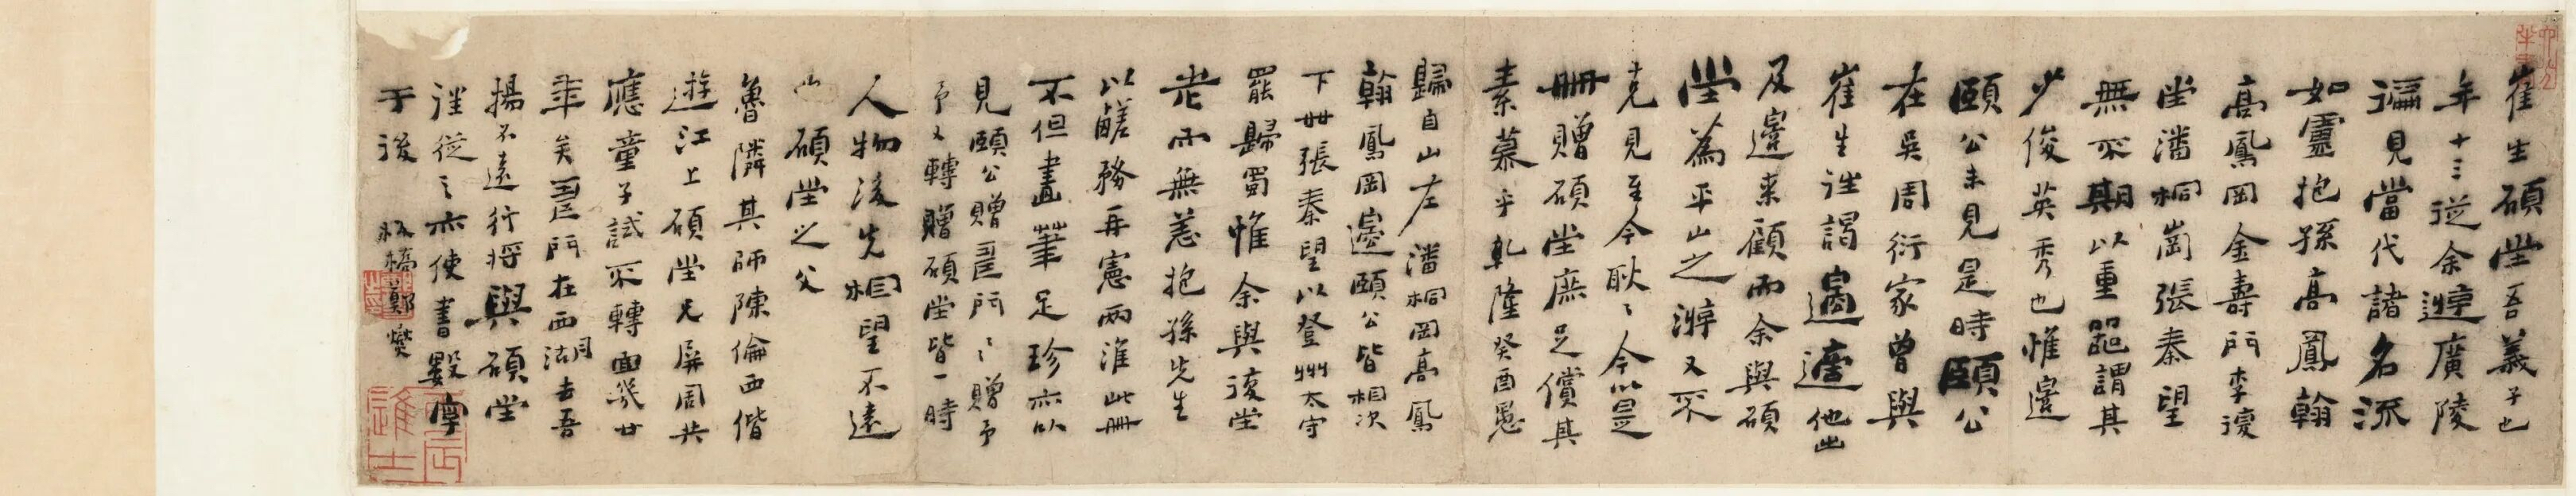 崔生碩堂吾義子也
年十三從余遊廣陵
遍見當代諸名流
如靈抱孫高鳳翰
高鳳岡金壽門李復
堂潘桐崗張秦望
無不期以重器謂其
少俊英秀也惟邊
頤公未見是時頤公
在吳周衍家曾與
崔生往謁適邊他出
及邊來顧而余與碩
堂為平山之遊又不
克見至今耿耿今以是
冊贈碩堂庶足償其
素慕乎乾隆癸酉愚
歸自山左潘桐岡高鳳
翰鳳岡邊頤公皆相次
下世張秦望以登州太守
罷歸蜀惟余與復堂
老而無恙抱孫先生
以鹺務再憲兩淮此冊
不但畫筆足珍亦以
見頤公贈壽門壽門贈予
予又轉贈碩堂皆一時
人物後先相望不遠
山碩堂之父
魯隣其師陳倫西偕
遊江上碩堂兄屏周共
應童子試不轉面幾廿
年矣壽門在西湖去吾
揚不遠行將與碩堂
往從之亦使書數字
于後 板橋鄭燮